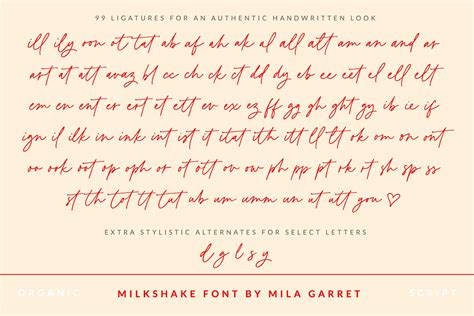 99 LIGATURES FOR AN AUTHENTIC HANDWRITTEN LOOK
ill ily oon ot tat ab af ah ak al all alt am an and ar
art at att avaz bl cc ch ck ct dd dy eb ec eet el ell elt
em en ent er ert et ett ev ex ez ff gg gh ght gy ib ie if
ign il ilk in ink int ist it itat ith itt ll lt ok om on ont
oo ook oot op oph or ot ott ov ow ph pp pt rk rt sh sp ss
st th tot tt tat ub um umm un ut att you ♡
EXTRA STYLISTIC ALTERNATES FOR SELECT LETTERS
d g l s y
ORGANIC MILKSHAKE FONT BY MILA GARRET SCRIPT